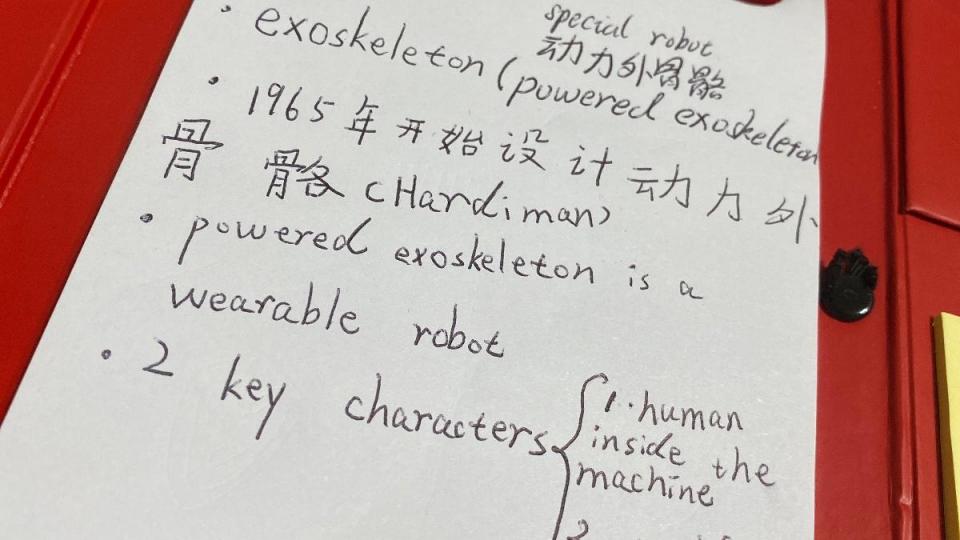 special robot
动力外骨骼
• exoskeleton (powered exoskeleton
• 1965年开始设计动力外
骨骼 (Hardiman)
• powered exoskeleton is a
wearable robot
• 2 key characters
1. human
inside the
machine
2